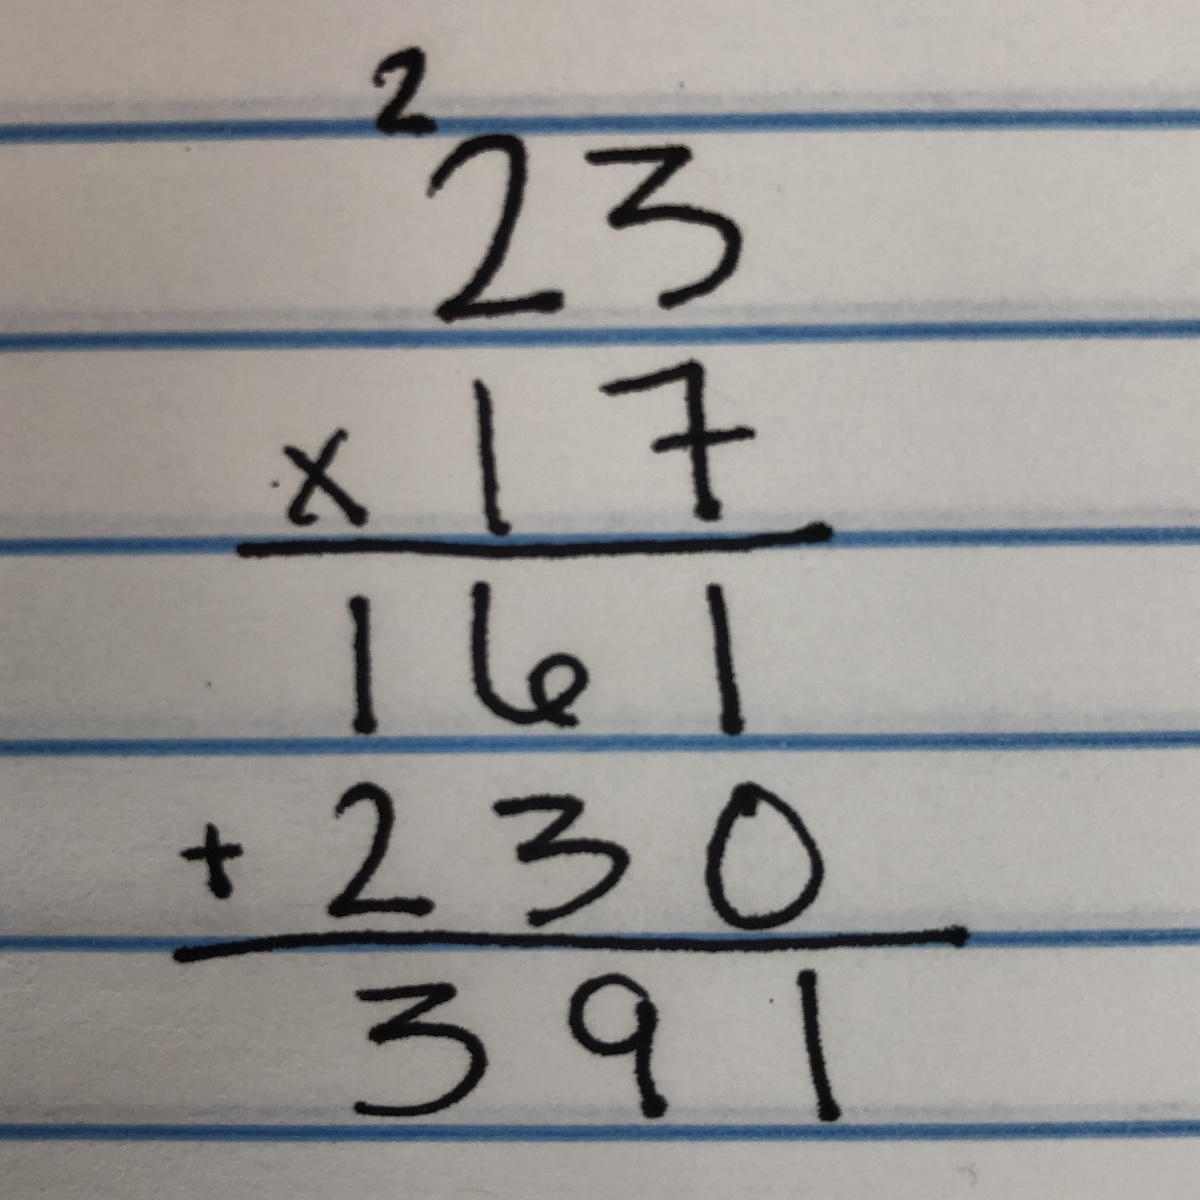 2
23
x 17
161
+ 230
391